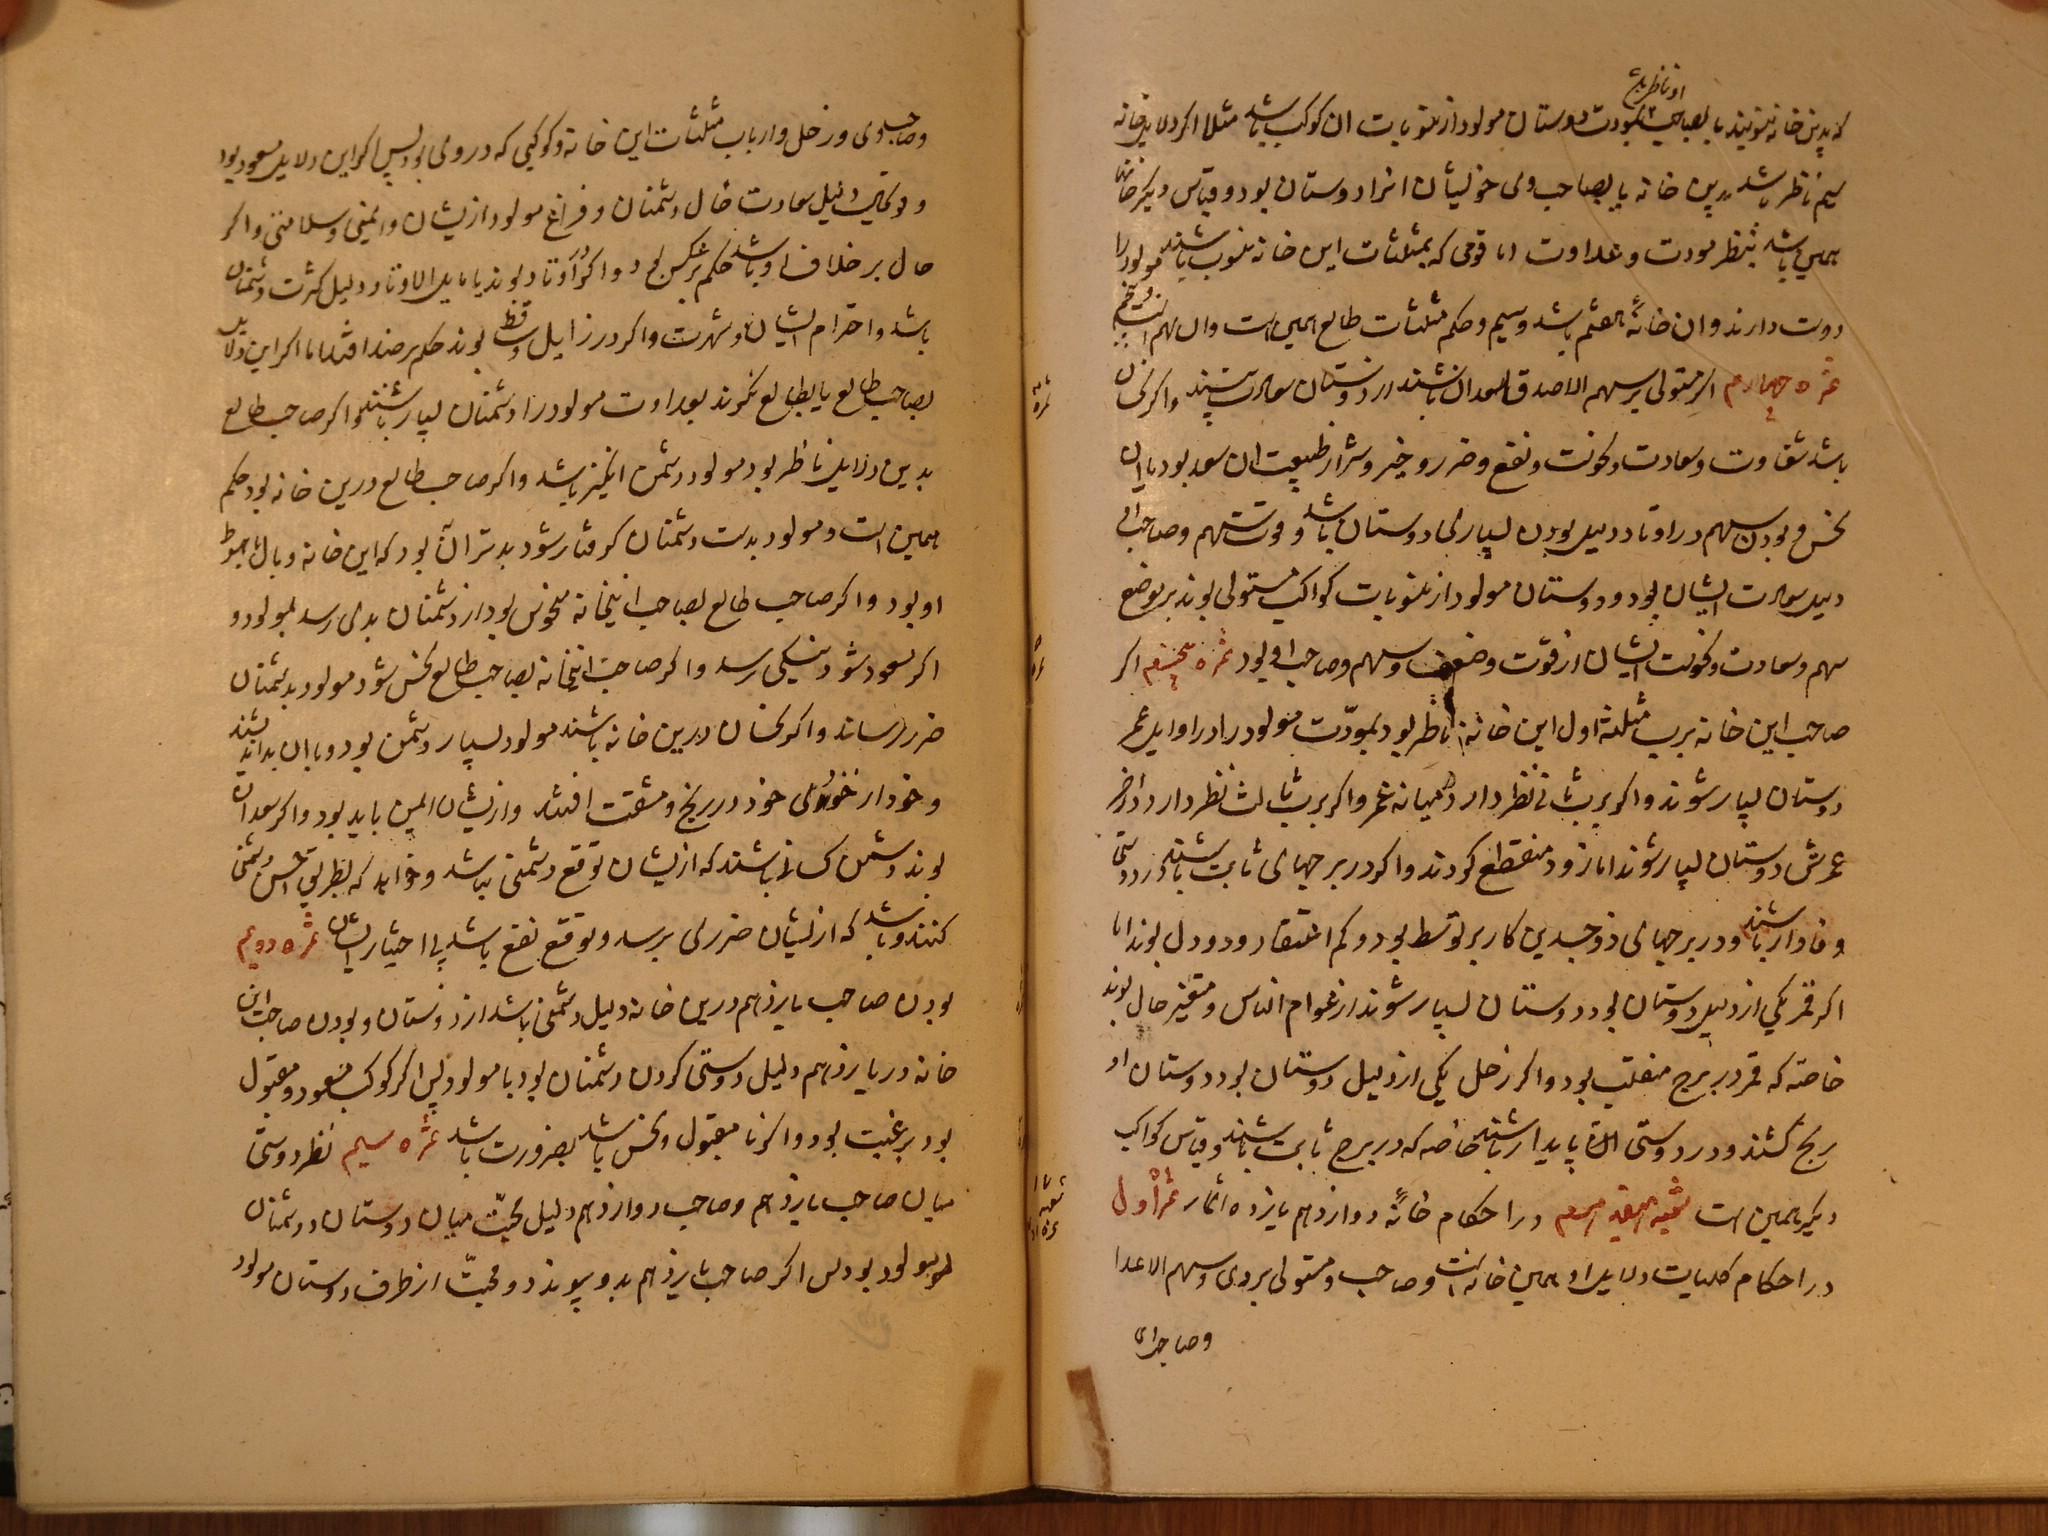 او ناظر باشد
که بدین خانه منسوبند یا بصاحب بمودت دوستان مولود از منسوبات آن کوکب باشد مثلا اگر دلایل خانه
سیم ناظر باشد بدین خانه یا بصاحب وی خویشان او را دوستان بود و قیاس دیگر خانها
همین باشد بنظر مودت و عداوت اما قومی که بمثلثات این خانه منسوب باشند مولود را
دوست دارند و ان خانهٔ هفتم باشد و سیم و حکم مثلثات طالع همین است وان سهم
ثمره چهارم اگر مستولی بر سهم الاصدقا سعدان باشند از دوستان سعادت بیند واگر نحسان
باشد شقاوت و سعادت و نحوست و نفع و ضرر و خیر و شر از طبیعت ان سعد بود یا ان
نحس و بودن سهم در اوتاد دلیل بودن بسیاری دوستان باشد و قوت سهم و صاحب او
دلیل سعادت ایشان بود و دوستان مولود از منسوبات کواکب مستولی بوند بر موضع
سهم و سعادت و نحوست ایشان از قوت و ضعف سهم و صاحب او بود ثمره پنجم اگر
صاحب این خانه برب مثلثه اول این خانه ناظر بود بمودّت مولود را در اوایل عمر
دوستان بسیار شوند و اگر برب ثانی نظر دارد در میانه عمر و اگر برب ثالث نظر دارد در آخر
عمرش دوستان بسیار شوند اما زود منقطع کردند و اگر در برجهای ثابت باشند در دوستی
وفادار باشند و در برجهای ذوجسدین کار بر توسط بود و کم اعتقاد و دو دل بوند اما
اگر قمر یکی از دلیل دوستان بود دوستان بسیار شوند از عوام الناس و متغیر حال بوند
خاصّه که قمر در برج منقلب بود و اگر زحل یکی از دلیل دوستان بود دوستان او
رنج کشند و در دوستی پایدار باشند خاصه که در برج ثابت باشند و قیاس کواکب
دیگر همین است در احکام خانهٔ دوازدهم یازده اثمار ثمرهٔ اول
در احکام کلیات دلایل او همین خانه است و صاحب و مستولی بروی و سهم الاعدا
و صاحب وی و زحل و ارباب مثلثات این خانه و کوکبی که در وی بود پس اگر این دلایل مسعود بود
دلیل سعادت حال دشمنان و فراغ مولود از یشان و ایمنی و سلامتی و اگر
حال بر خلاف او باشد حکم بر عکس بود و اگر در اوتاد بوند یا مایل الاوتاد دلیل کثرت دشمنان
باشد و احترام ایشان و شهرت و اگر در زایل و ساقط بوند حکم بر ضد افتد اما اگر این دلایل
بصاحب طالع یا بطالع نگرند بعداوت مولود را دشمنان بسیار باشند و اگر صاحب طالع
بدین دلایل ناظر بود مولود دشمن انگیز باشد و اگر صاحب طالع درین خانه بود حکم
همین است و مولود بدست دشمنان کرفتار شود بدتر آن بود که این خانه وبال یا هبوط
او بود و اگر صاحب طالع بصاحب اینخانه منحوس بود از دشمنان بدی رسد بمولود و
اگر مسعود شود نیکی رسد و اگر صاحب اینخانه بصاحب طالع نحس شود مولود بدشمنان
ضرر رساند و اگر نحسان درین خانه باشند مولود بسیار دشمن بود
و خود از خوی خود در رنج و مشقت افتد و ازیشان ایمن باید بود و اگر سعدان
بوند دشمن کسانی باشند که ازیشان توقع دشمنی نباشد و خواهد که بطریق احسن دشمنی
کنند و باشد که ازیشان ضرری برسد و توقع نفع باشد بی اختیار ایشان ثمره دویم
بودن صاحب یازدهم درین خانه دلیل دشمنی باشد از دوستان و بودن صاحب این
خانه در یازدهم دلیل دوستی کردن دشمنان بود با مولود پس اگر کوکب مسعود و مقبول
بود برغبت بود و اگر نا مقبول و نحس باشد بضرورت باشد ثمره سیم نظر دوستی
میان صاحب یازدهم و صاحب دوازدهم دلیل محبّت میان دوستان و دشمنان
مولود بود پس اگر صاحب یازدهم بدو پیوندد و محبّت از طرف دوستان مولود